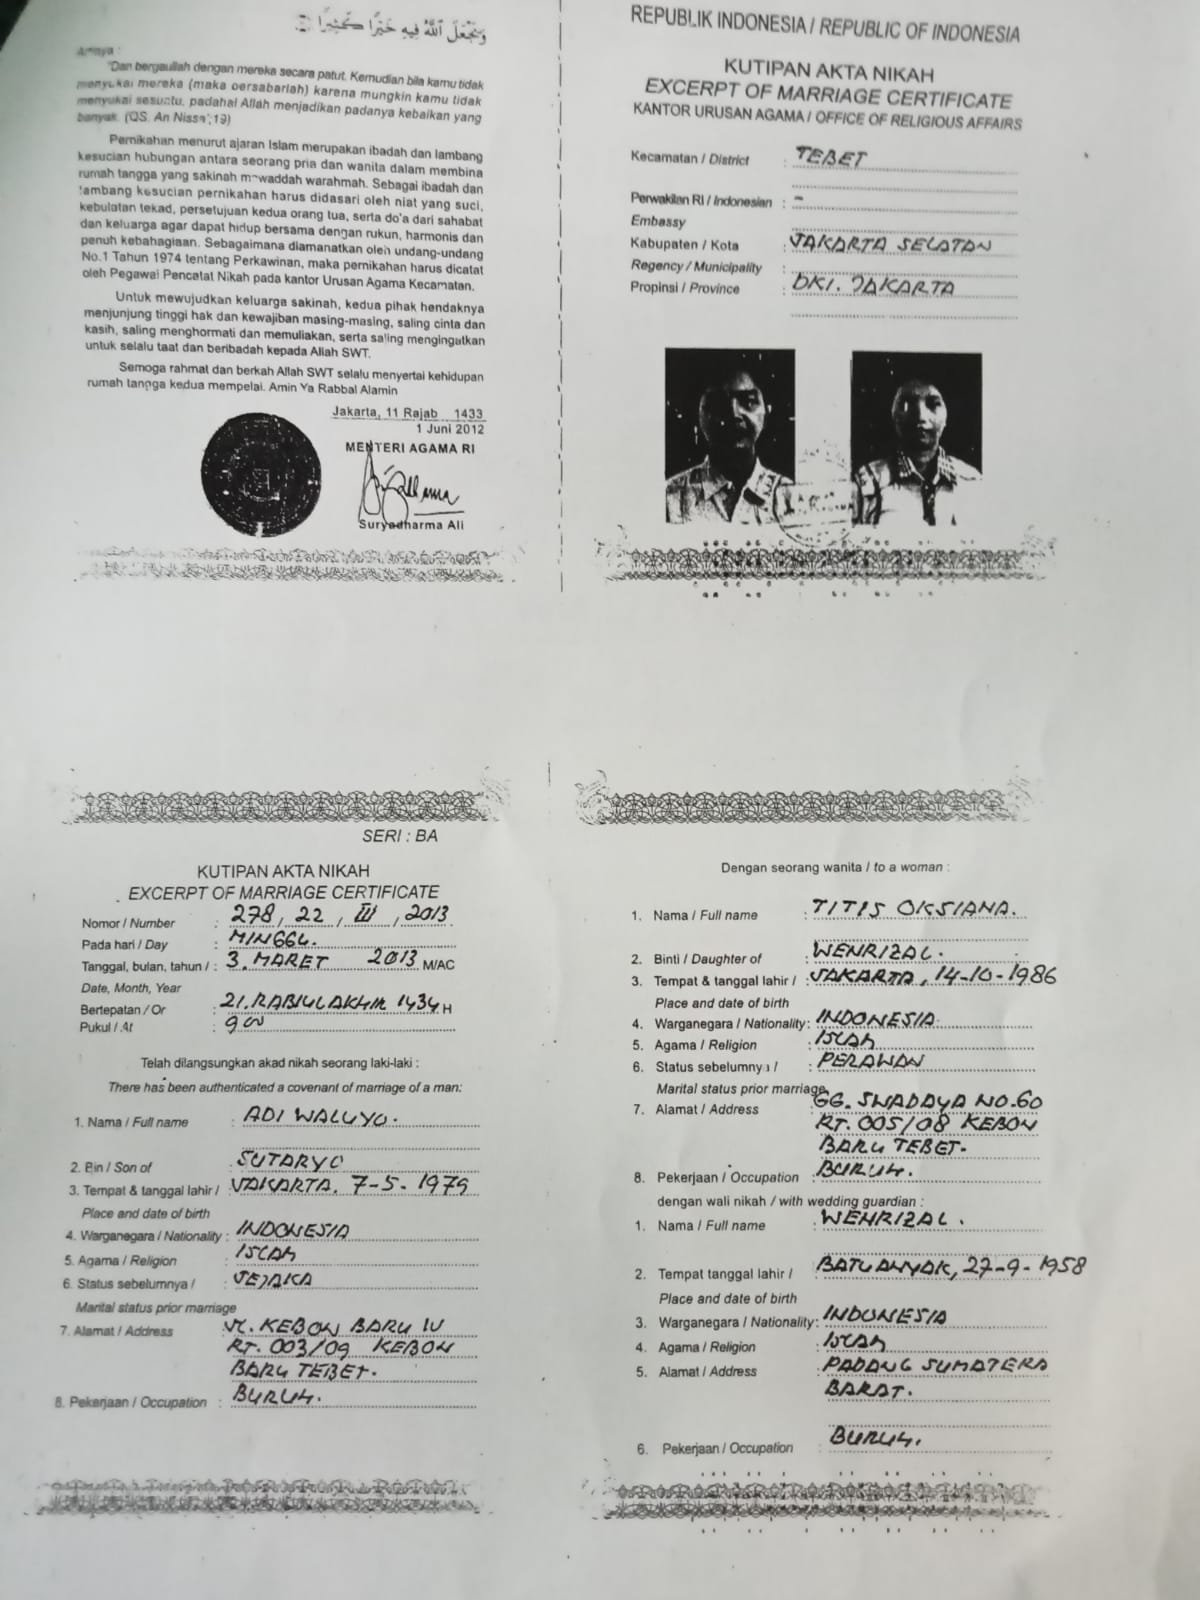 وَيَجْعَلَ اللَّهُ فِيهِ خَيْرًا كَثِيرًا
Artinya :
"Dan bergaullah dengan mereka secara patut. Kemudian bila kamu tidak
menyukai mereka (maka bersabarlah) karena mungkin kamu tidak
menyukai sesuatu, padahal Allah menjadikan padanya kebaikan yang
banyak. (QS. An Nissa',19)
Pernikahan menurut ajaran Islam merupakan ibadah dan lambang
kesucian hubungan antara seorang pria dan wanita dalam membina
rumah tangga yang sakinah mawaddah warahmah. Sebagai ibadah dan
lambang kesucian pernikahan harus didasari oleh niat yang suci,
kebulatan tekad, persetujuan kedua orang tua, serta do'a dari sahabat
dan keluarga agar dapat hidup bersama dengan rukun, harmonis dan
penuh kebahagiaan. Sebagaimana diamanatkan oleh undang-undang
No.1 Tahun 1974 tentang Perkawinan, maka pernikahan harus dicatat
oleh Pegawai Pencatat Nikah pada kantor Urusan Agama Kecamatan.
Untuk mewujudkan keluarga sakinah, kedua pihak hendaknya
menjunjung tinggi hak dan kewajiban masing-masing, saling cinta dan
kasih, saling menghormati dan memuliakan, serta saling mengingatkan
untuk selalu taat dan beribadah kepada Allah SWT.
Semoga rahmat dan berkah Allah SWT selalu menyertai kehidupan
rumah tangga kedua mempelai. Amin Ya Rabbal Alamin
Jakarta, 11 Rajab 1433
1 Juni 2012
MENTERI AGAMA RI
Suryadharma Ali
REPUBLIK INDONESIA / REPUBLIC OF INDONESIA
KUTIPAN AKTA NIKAH
EXCERPT OF MARRIAGE CERTIFICATE
KANTOR URUSAN AGAMA / OFFICE OF RELIGIOUS AFFAIRS
Kecamatan / District : TEBET
Perwakilan RI / Indonesian : -
Embassy
Kabupaten / Kota : JAKARTA SELATAN
Regency / Municipality :
Propinsi / Province : DKI. JAKARTA
SERI : BA
KUTIPAN AKTA NIKAH
EXCERPT OF MARRIAGE CERTIFICATE
Nomor / Number : 278, 22, III, 2013
Pada hari / Day : MINGGU.
Tanggal, bulan, tahun / : 3. MARET 2013 M/AC
Date, Month, Year
Bertepatan / Or : 21. RABIULAKHIR 1434 H
Pukul / At : 9 00
Telah dilangsungkan akad nikah seorang laki-laki :
There has been authenticated a covenant of marriage of a man:
1. Nama / Full name : ADI WALUYO.
2. Bin / Son of : SUTARYO
3. Tempat & tanggal lahir / : JAKARTA, 7-5-1979
Place and date of birth
4. Warganegara / Nationality : INDONESIA
5. Agama / Religion : ISLAM
6. Status sebelumnya / : JEJAKA
Marital status prior marriage
7. Alamat / Address JL. KEBON BARU IV
RT. 003/09 KEBON
BARU TEBET.
8. Pekerjaan / Occupation : BURUH.
Dengan seorang wanita / to a woman :
1. Nama / Full name : TITIS OKSIANA.
2. Binti / Daughter of : WENRIZAL.
3. Tempat & tanggal lahir / : JAKARTA, 14-10-1986
Place and date of birth
4. Warganegara / Nationality : INDONESIA
5. Agama / Religion : ISLAM
6. Status sebelumnya / : PERAWAN
Marital status prior marriage
7. Alamat / Address GG. SWADAYA NO.60
RT. 005/08 KEBON
BARU TEBET.
8. Pekerjaan / Occupation : BURUH.
dengan wali nikah / with wedding guardian :
1. Nama / Full name : WENRIZAL.
2. Tempat tanggal lahir / : 27-9-1958
Place and date of birth
3. Warganegara / Nationality : INDONESIA
4. Agama / Religion : ISLAM
5. Alamat / Address : PADANG SUMATERA
BARAT.
6. Pekerjaan / Occupation : BURUH.